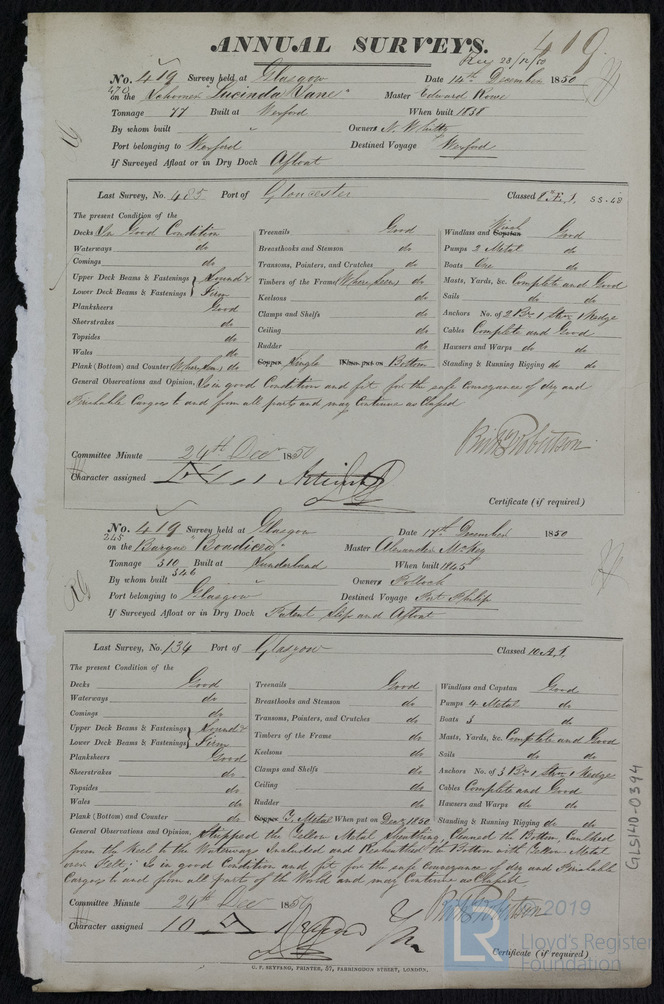 ANNUAL SURVEYS.
419
Rec 23/12/50
No. 419 Survey held at Glasgow Date 14th December 1850
470
on the Schooner "Lucinda Jane" Master Edward Rowe
Tonnage 77 Built at Wexford When built 1838
By whom built " Owners N. Whitty
Port belonging to Wexford Destined Voyage Wexford
If Surveyed Afloat or in Dry Dock Afloat
Last Survey, No. 485 Port of Gloucester Classed Æ. 1. 55-48
The present Condition of the
Decks In Good Condition
Waterways do
Comings do
Upper Deck Beams & Fastenings } Sound &
Lower Deck Beams & Fastenings } Firm
Planksheers Good
Sheerstrakes do
Topsides do
Wales do
Plank (Bottom) and Counter Where seen do
Treenails Good
Breasthooks and Stemson do
Transoms, Pointers, and Crutches do
Timbers of the Frame Where seen do
Keelsons do
Clamps and Shelfs do
Ceiling do
Rudder do
Copper Single When put on Bottom
Windlass and Capstan Winch Good
Pumps 2 Metal do
Boats One do
Masts, Yards, &c. Complete and Good
Sails do do
Anchors No. of 2 Br 1 Strm 1 Kedge
Cables Complete and Good
Hawsers and Warps do do
Standing & Running Rigging do do
General Observations and Opinion, Is in good Condition and fit for the safe Conveyance of dry and
Perishable Cargoes to and from all parts and may Continue as Classed
Robertson
Committee Minute 24th Decr 1850
Character assigned
Certificate (if required)
No. 419 Survey held at Glasgow Date 17th December 1850
245
on the Barque "Boadicea" Master Alexander McKey
Tonnage 310 Built at Sunderland When built 1845
346
By whom built " Owners Pollock
Port belonging to Glasgow Destined Voyage Port Philip
If Surveyed Afloat or in Dry Dock Patent Slip and Afloat
Last Survey, No. 134 Port of Glasgow Classed 10 A.1.
The present Condition of the
Decks Good
Waterways do
Comings do
Upper Deck Beams & Fastenings } Sound &
Lower Deck Beams & Fastenings } Firm
Planksheers Good
Sheerstrakes do
Topsides do
Wales do
Plank (Bottom) and Counter do
Treenails Good
Breasthooks and Stemson do
Transoms, Pointers, and Crutches do
Timbers of the Frame do
Keelsons do
Clamps and Shelfs do
Ceiling do
Rudder do
Copper Y. Metal When put on Decr 1850
Windlass and Capstan Good
Pumps 4 Metal do
Boats 3 do
Masts, Yards, &c. Complete and Good
Sails do do
Anchors No. of 3 Br 1 Strm 1 Kedge
Cables Complete and Good
Hawsers and Warps do do
Standing & Running Rigging do do
General Observations and Opinion, Stripped the Yellow Metal Sheathing, Cleaned the Bottom, Caulked
from the Keel to the Waterways Included and Resheathed the Bottom with Yellow Metal
over Felt; Is in good Condition and fit for the safe Conveyance of dry and Perishable
Cargoes to and from all parts of the World and may Continue as Classed
Robertson
Committee Minute 24th Decr 1850
Character assigned 10 A
Certificate (if required)
G. F. SEYFANG, PRINTER, 57, FARRINGDON STREET, LONDON.
GLS140-0394
2019
LR
Lloyd's Register
Foundation